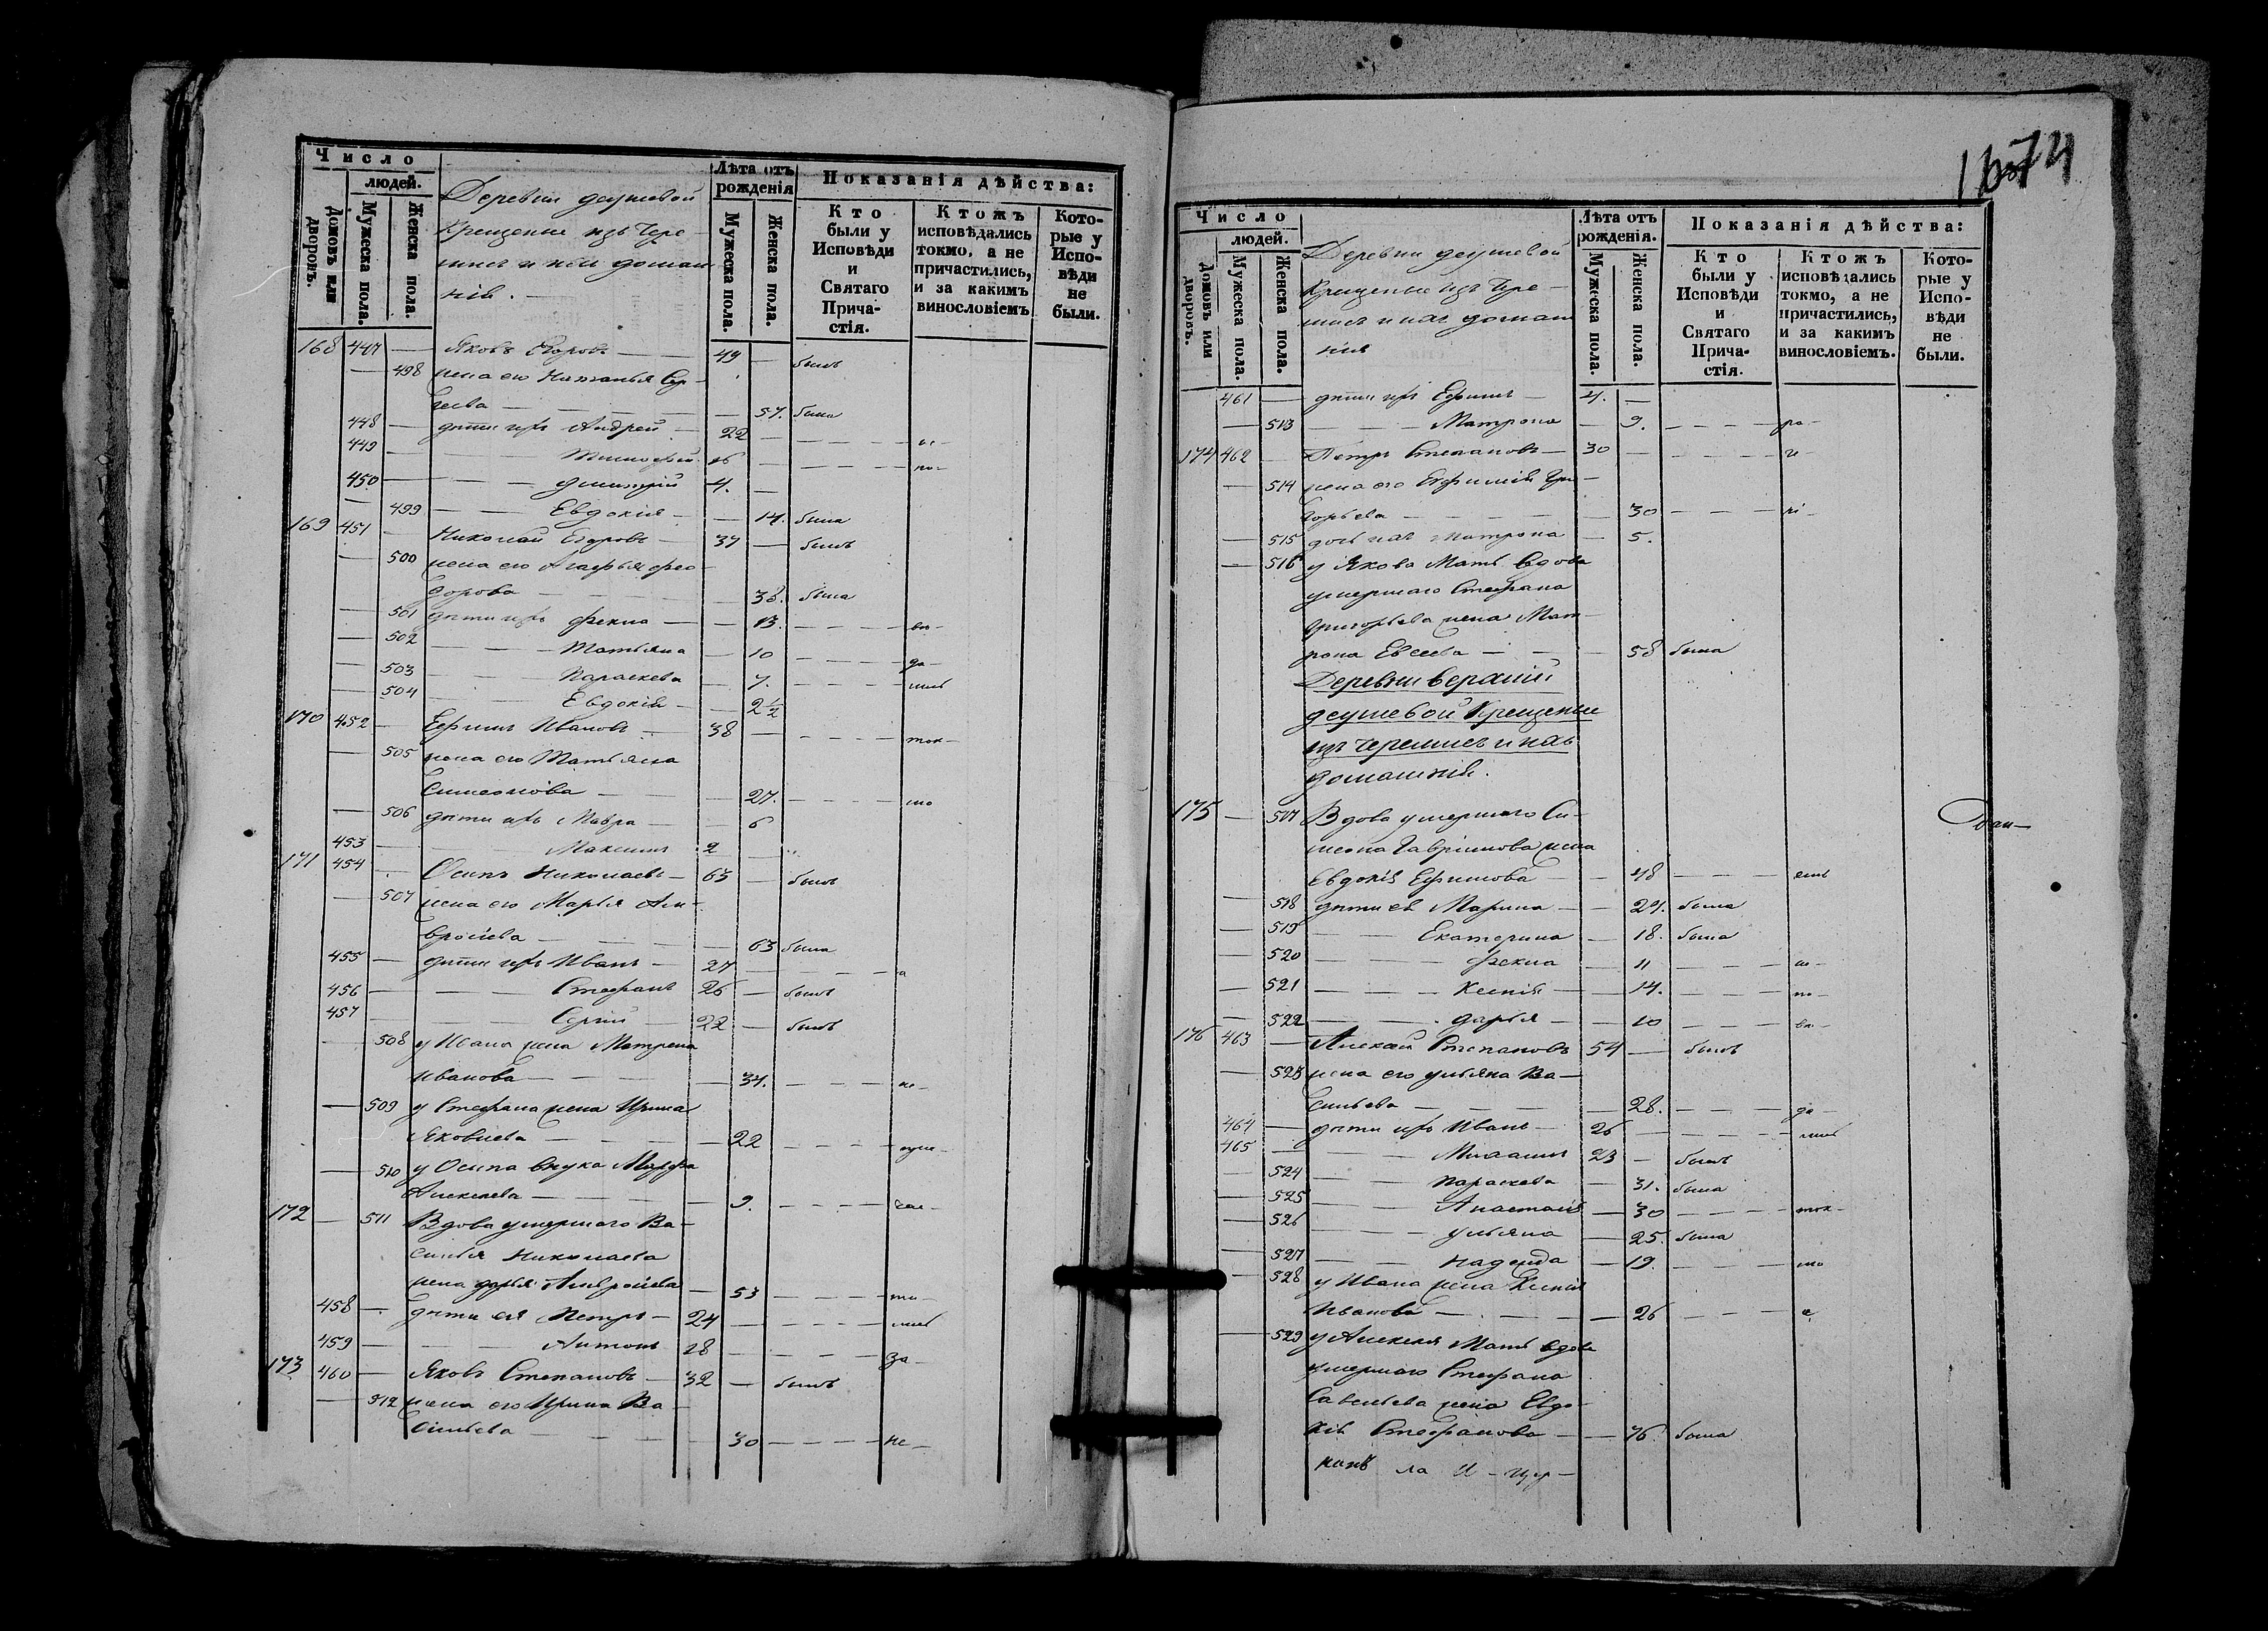 Число
людей.
Домовъ или дворовъ.
Мужеска пола.
Женска пола.
Деревни деушевой
Крещеные изъ Чере-
мисъ и ихъ домаш
нія.
Лѣта отъ рожденія
Мужеска пола.
Женска пола.
Показанія дѣйства:
Кто были у Исповѣди и Святаго Прича-стія.
Ктожъ исповѣдались токмо, а не причастились, и за какимъ винословіемъ
Кото-рые у Испо-вѣди не были.
168 447 — Яковъ Егоровъ — 49 — былъ
— 498 жена его Наталья Сер-
геева — — 57. была
448 — дѣти ихъ Андрей — 22 —
449 — Тимофей 16 — по-
450 — Димитрій 4. —
— 499 — Евдокія — — 14. была
169 451 — Николай Егоровъ — 37 — былъ
— 500 жена его Агафья Фео-
дорова — — 38. была
— 501 дѣти ихъ Фекла — — 13. вы-
— 502 — Татьяна — 10 да-
— 503 — Параскева — 7.
— 504 — Евдокія — — 2 1/2
170 452 — Ефимъ Ивановъ — 38 — ток-
— 505 жена его Татьяна
Симеонова — — 27. мо
— 506 дѣти ихъ Мавра — — 6
453 — Максимъ 2 —
171 454 — Осипъ Николаевъ — 63 — былъ
— 507 жена его Марья Ам-
вросіева — — 63 была
455 — дѣти ихъ Иванъ — 27 — а
456 — Стефанъ 26 — былъ
457 — Сергій — 22 — былъ
— 508 у Ивана жена Матрена
Иванова — — 34. не-
— 509 у Стефана жена Ирина
Яковлева — — 22
— 510 у Осипа внука Марфа
Алексѣева — — 9.
172 — 511 Вдова умершаго Ва-
силья Николаева
жена Дарья Амвросіева — 53
458 — дѣти ея Петръ — 24 —
459 — Антонъ 18 — за-
173 460 — Яковъ Степановъ — 32 — былъ
— 512 жена его Ирина Ва-
сильева — — 30 не-
Число
людей.
Домовъ или дворовъ.
Мужеска пола.
Женска пола.
Деревни деушевой
Крещеные изъ Чере-
мисъ и ихъ домаш
нія
Лѣта отъ рожденія.
Мужеска пола.
Женска пола.
Показанія дѣйства:
Кто были у Исповѣди и Святаго Прича-стія.
Ктожъ исповѣдались токмо, а не причастились, и за какимъ винословіемъ.
Кото-рые у Испо-вѣди не были.
461 — дѣти ихъ Ефимъ — 4. —
— 513 — Матрона — 9. ра-
174 462 — Петръ Степановъ — 30 — и-
— 514 жена его Евфимія Гри-
горьева — — 30
— 515 дочь ихъ Матрона — 5.
— 516 у Якова Мать вдова
умершаго Стефана
Григорьева жена Мат-
рона Евсеева — — 58 была
Деревни верхній
деушевой Крещеные
изъ Черемисъ и ихъ
домашнія.
175 — 517 Вдова умершаго Си-
меона Гаврилова жена
Евдокія Ефимова — 48
— 518 дѣти ея Марина — — 24. была
— 519 — Екатерина — 18. была
— 520 — Фекла — 11
— 521 — Ксенія — 14. по-
— 522 — Дарья — 10 вы-
176 463 — Алексѣй Степановъ 54 — былъ
— 523 жена его Ульяна Ва-
сильева — — 28. да-
464 — дѣти ихъ Иванъ — 26 —
465 — Михаилъ 23 — былъ
— 524 — Параскева — 31. была
— 525 — Анастасія — 30 ток-
— 526 — Ульяна — 25. была
— 527 — Надежда — 19. мо
— 528 у Ивана жена Ксенія
Иванова — — 26
— 529 у Алексѣя Мать вдова
умершаго Стефана
Савельева жена Евдо-
кія Стефанова — — 76. была